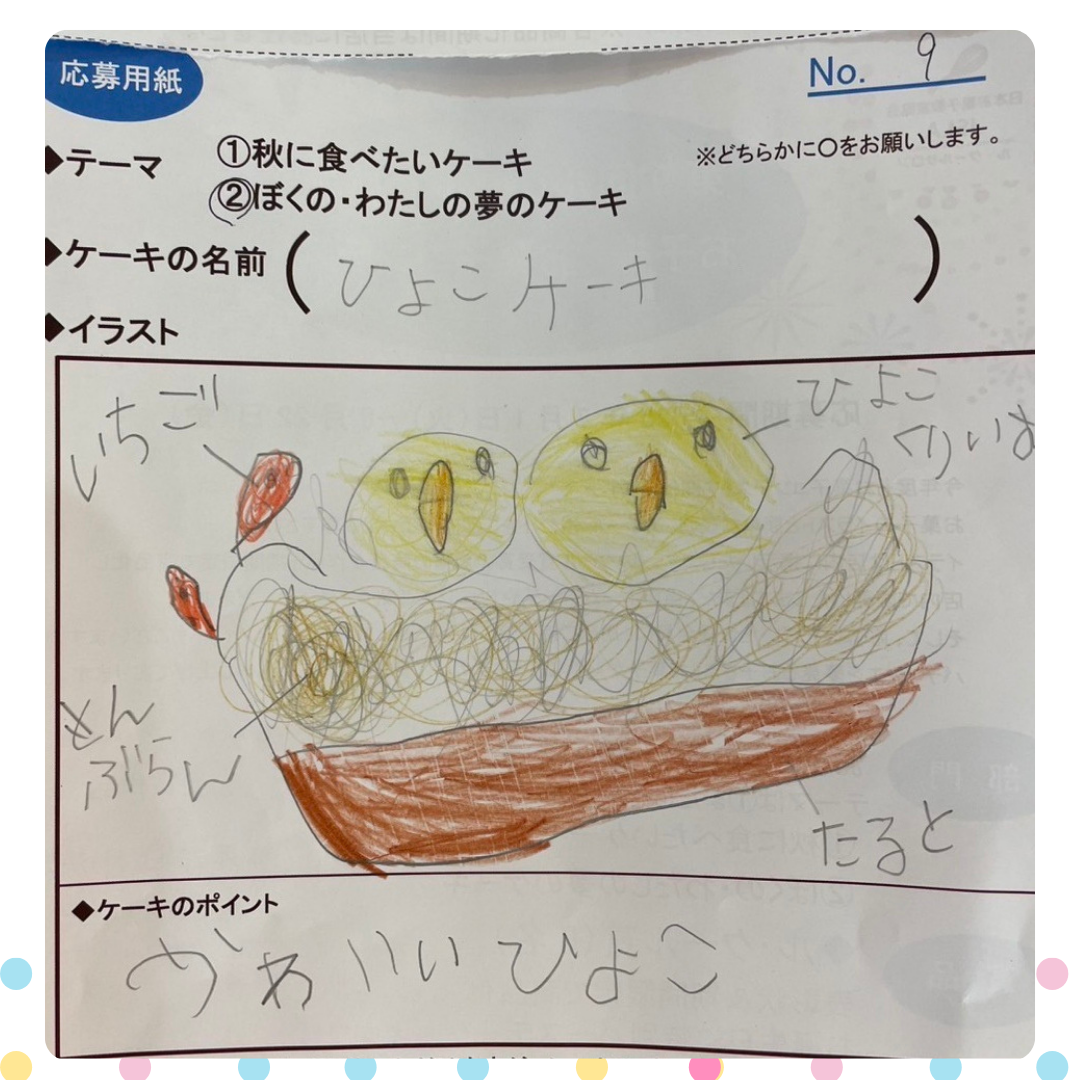 応募用紙
No. 9
◆テーマ ①秋に食べたいケーキ ※どちらかに〇をお願いします。
②ぼくの・わたしの夢のケーキ
◆ケーキの名前 (ひよこケーキ)
◆イラスト
いちご
ひよこ
くりいむ
もんぶらん
たると
◆ケーキのポイント
かわいいひよこ